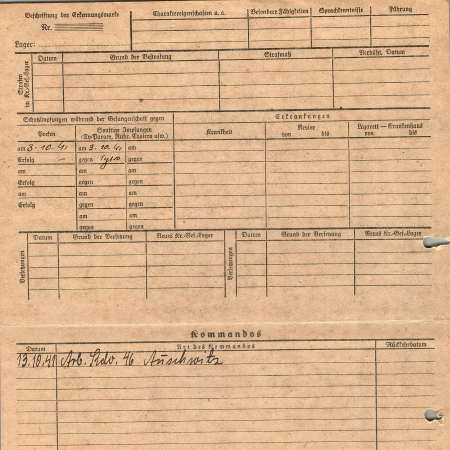 Beschriftung der Erkennungsmarke
Nr.
Lager:
Charaktereigenschaften u. a.
Besondere Fähigkeiten
Sprachkenntnisse
Führung
Strafen im Kr.-Gef.-Lager
Datum
Grund der Bestrafung
Strafmaß
Verbüßt, Datum
Schutzimpfungen während der Gefangenschaft gegen
Erkrankungen
Pocken
Sonstige Impfungen
(Ty.-Paratyph., Ruhr, Cholera usw.)
Krankheit
Revier
von bis
Lazarett — Krankenhaus
von bis
am 3.10.41 am 3.10.41 am
Erfolg – gegen Typh gegen
am am am
Erfolg gegen gegen
am am am
Erfolg gegen gegen
am am
gegen gegen
Versetzungen
Datum
Grund der Versetzung
Neues Kr.-Gef.-Lager
Versetzungen
Datum
Grund der Versetzung
Neues Kr.-Gef.-Lager
Kommandos
Datum
Art des Kommandos
Rückkehrdatum
13.10.41 Arb. Kdo. 46 Auschwitz